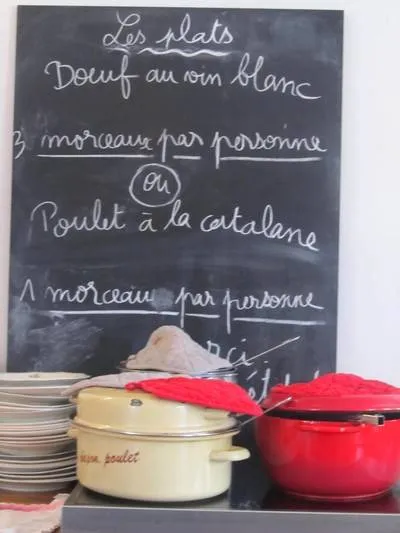 Les plats
Bœuf au vin blanc
3 morceaux par personne
ou
Poulet à la catalane
1 morceau par personne
poulet